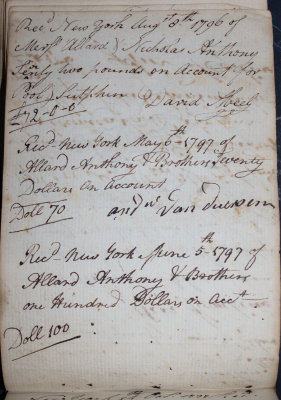 Recd New York Augt 8th 1796 of
Messrs Allard & Nicholas Anthony
Seventy two pounds on Account for
£72-0-0 David
Recd New York May 6th 1797 of
Allard Anthony & Brothers Seventy
Dollars on Account
Doll 70 Andw Van Tuersen
Recd New York June 5th 1797 of
Allard Anthony & Brothers
one Hundred Dollars on Acct
Doll 100